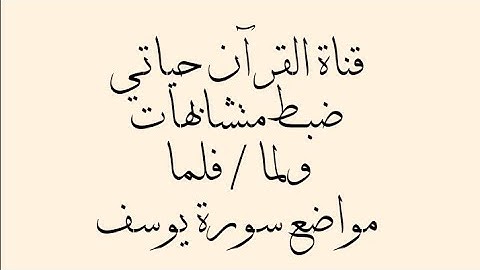 قناة القرآن حياتي
ضبط متشابهات
ولما / فلما
مواضع سورة يوسف